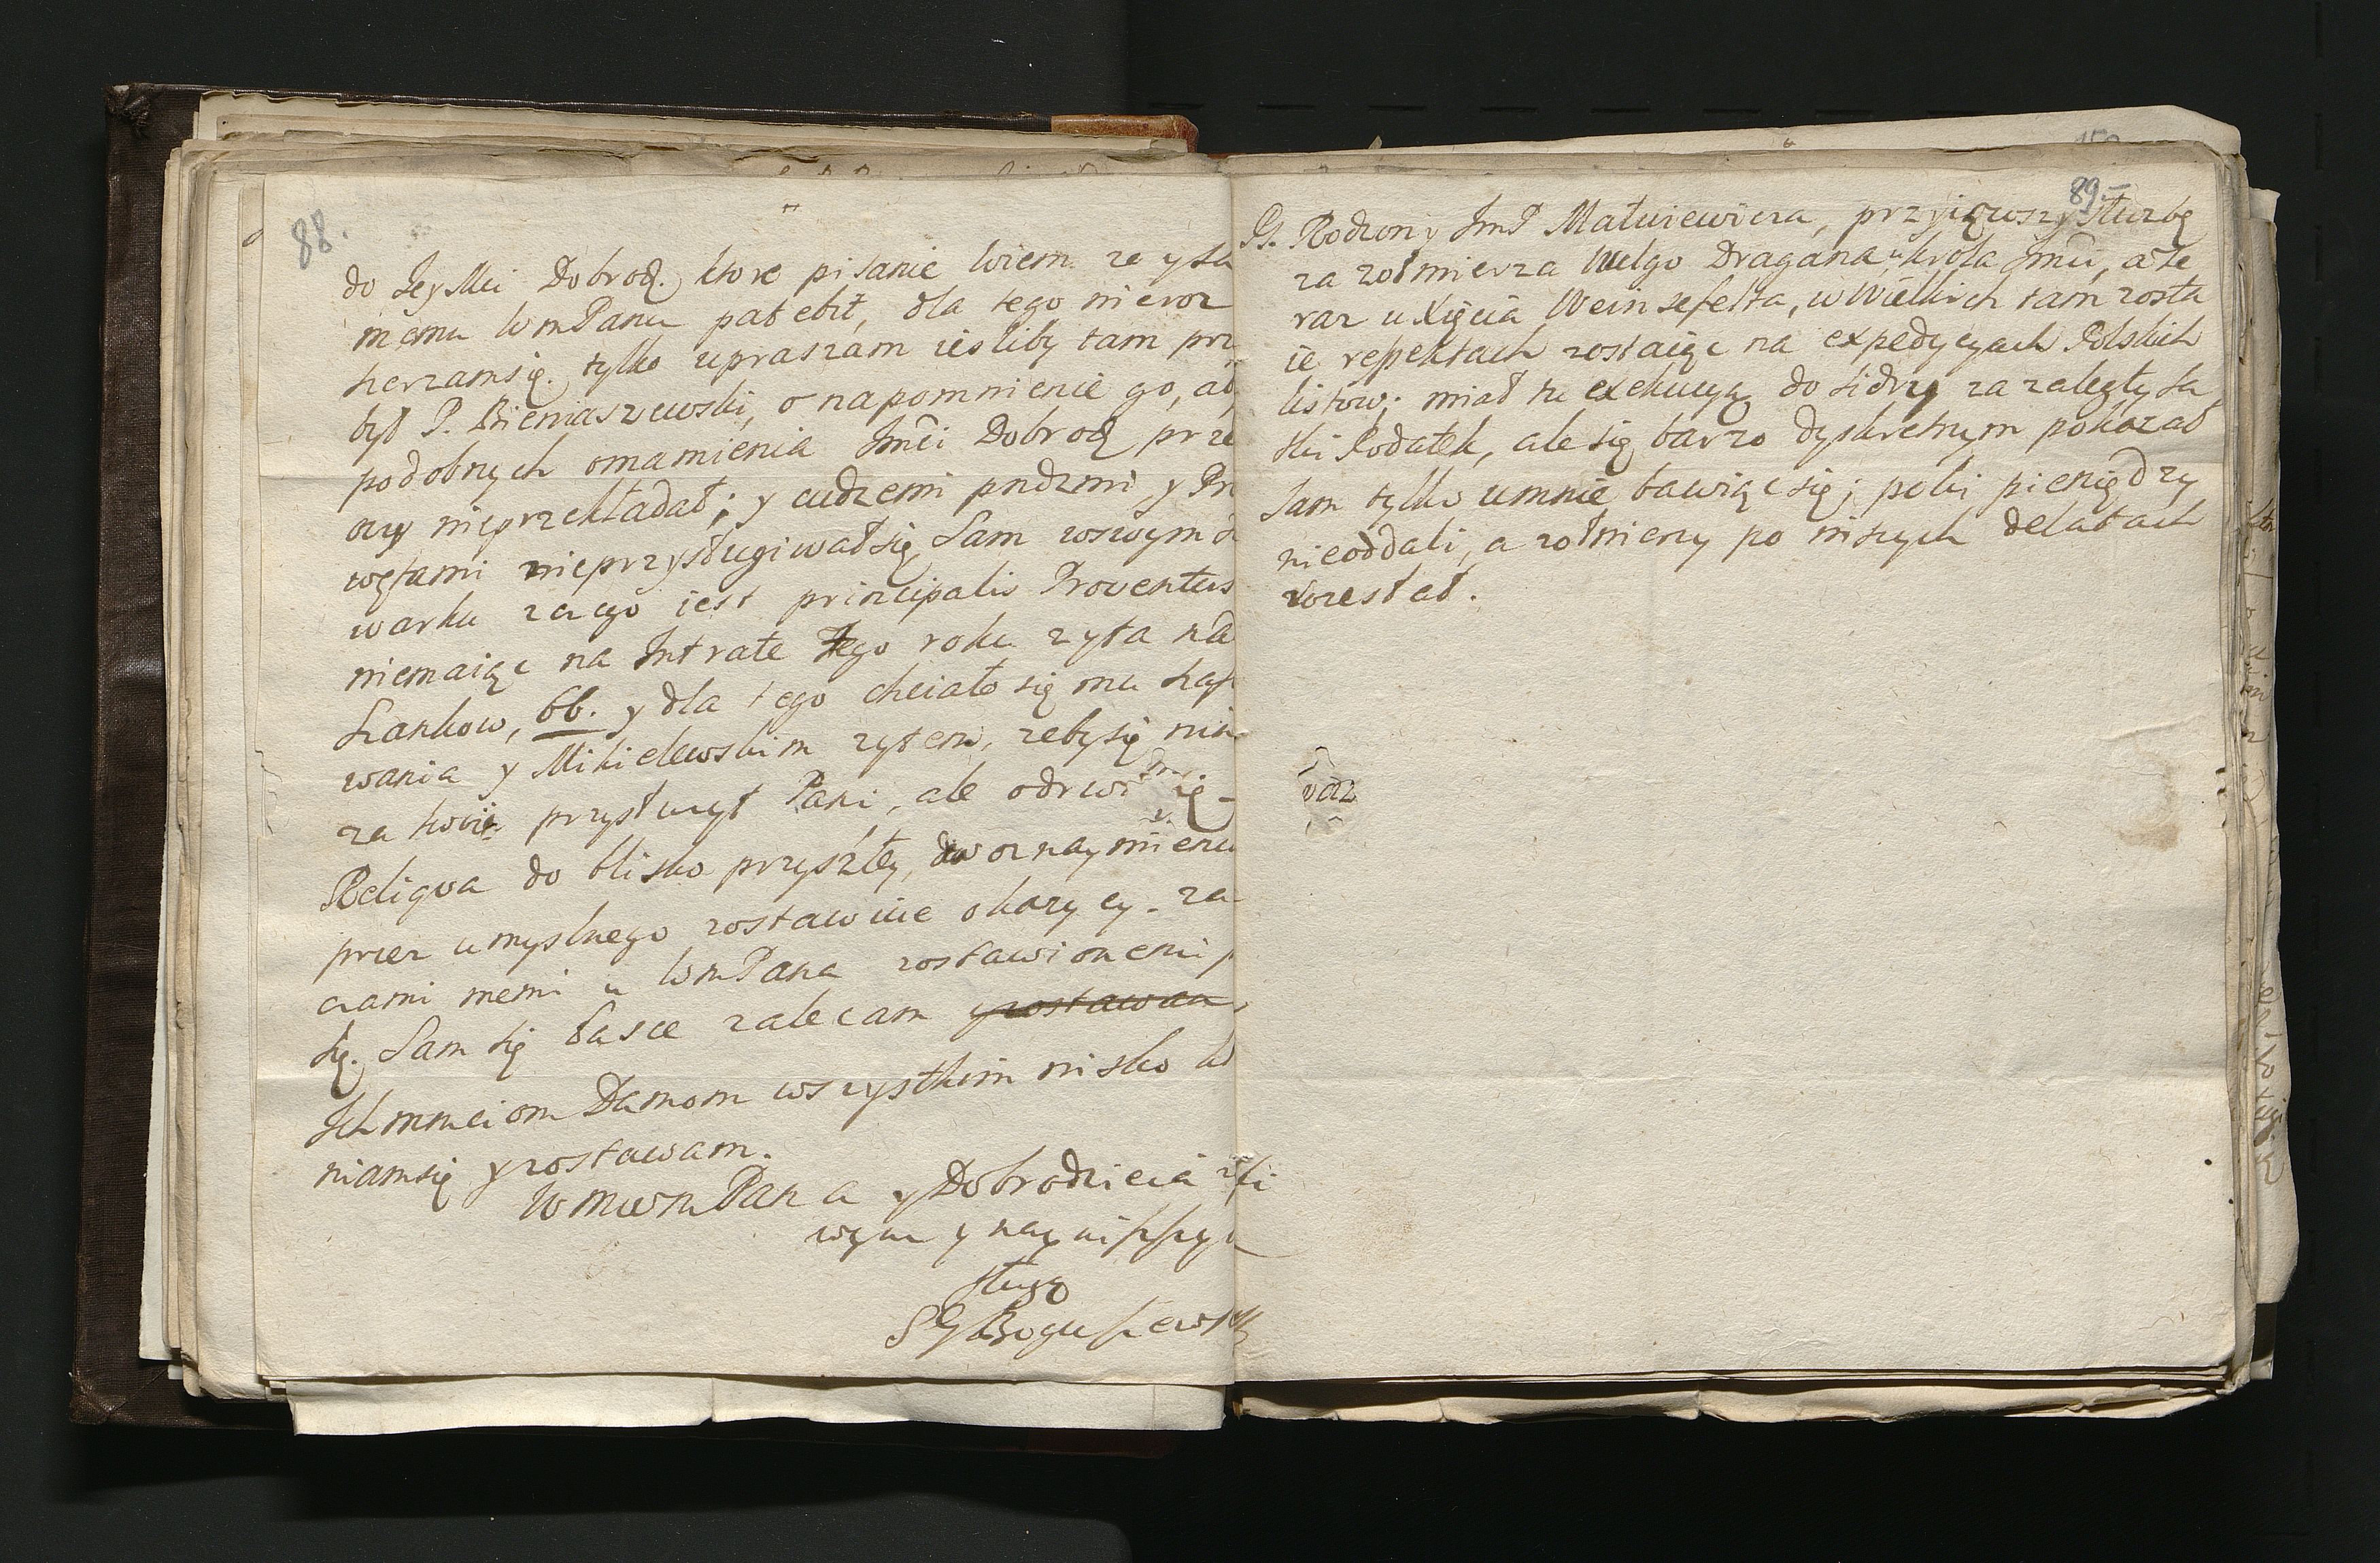 88.
do Jey Mci Dobrodz. ktore pisanie wiem ze y sa
memu WmPanu patebit, dla tego nieroz
szerzamsię. tylko upraszam iesliby tam prz
był P. Bieniaszewski, o napomnienie go, ab
podobnych omamienia Jmci Dobrodz prze
oczy nieprzekładał; y cudzemi pndzmi, y Pr
wętami nieprzysługiwał się, Sam wswym
warku zaego iest principalis Proventus
niemaiąc na Intrate Tego roku zyta nad
szankow, 66. y dla tego chciało się mu
wania y Mikielewskim zytem, zeby się
za swoie przysłuzył Pani, ale
Reliqva do blisko przyszłey,
przez umyslnego zostawuie okazyey. za
czami memi u WmPana zostawionemi
się. Sam się łasce zalecam y zostawam
Ichmmciom Damom wszystkim nisko kł
niamsię y zostawam.
WmmPana y Dobrodzieia
wym y nayniższym
sługą
SG Boguszewski
89.
PS. Rodzony JmP Matuiewicza, przyiąwszy służbę
za zołmierza Wielgo Dragana u krola Jmci, a te
raz u Xięcia Weinsefelta, w Wielkich tam zosta
ie respektach zostaiąc na expedycyach Polskich
listow; miał tu exekucyą do Sidry za zaległy Sa
ski Podatek, ale się barzo dyskretnym pokazał
sam tylko umnie bawiąc się; poki pieniędzy
nieoddali, a zołnierzy po inszych delatach
rozesłał.